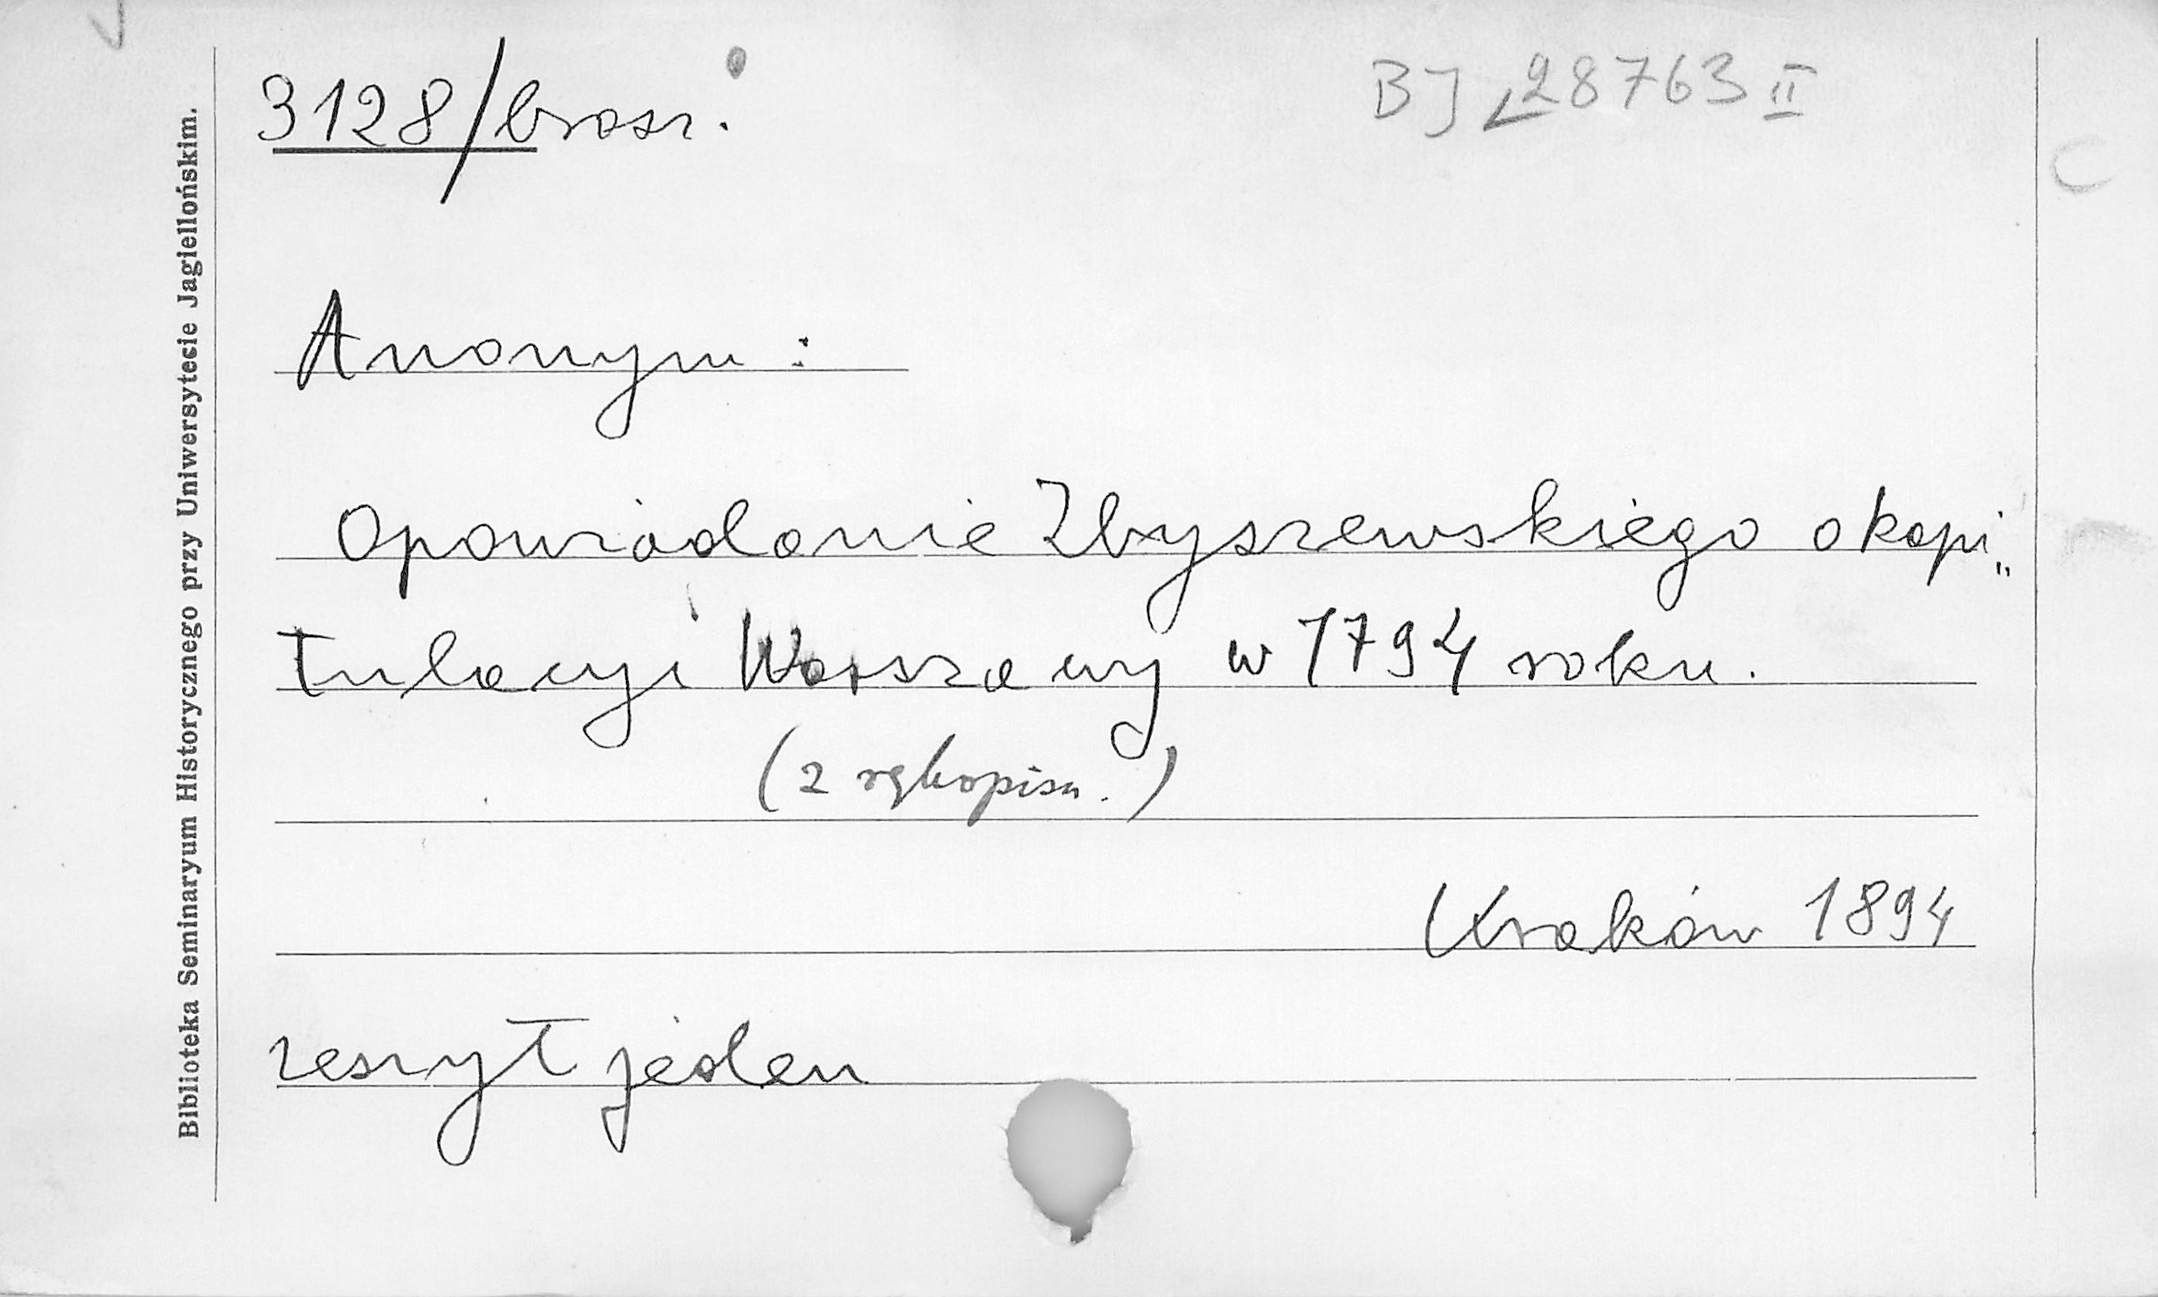 3128/brosz.
BJ 28763 II
Anonym:
Opowiadanie Zbyszewskiego o kapi„
tulacyi Warszawy w 1794 roku.
(z rękopisu.)
Kraków 1894
zeszyt jeden
Biblioteka Seminaryum Historycznego przy Uniwersytecie Jagiellońskim.